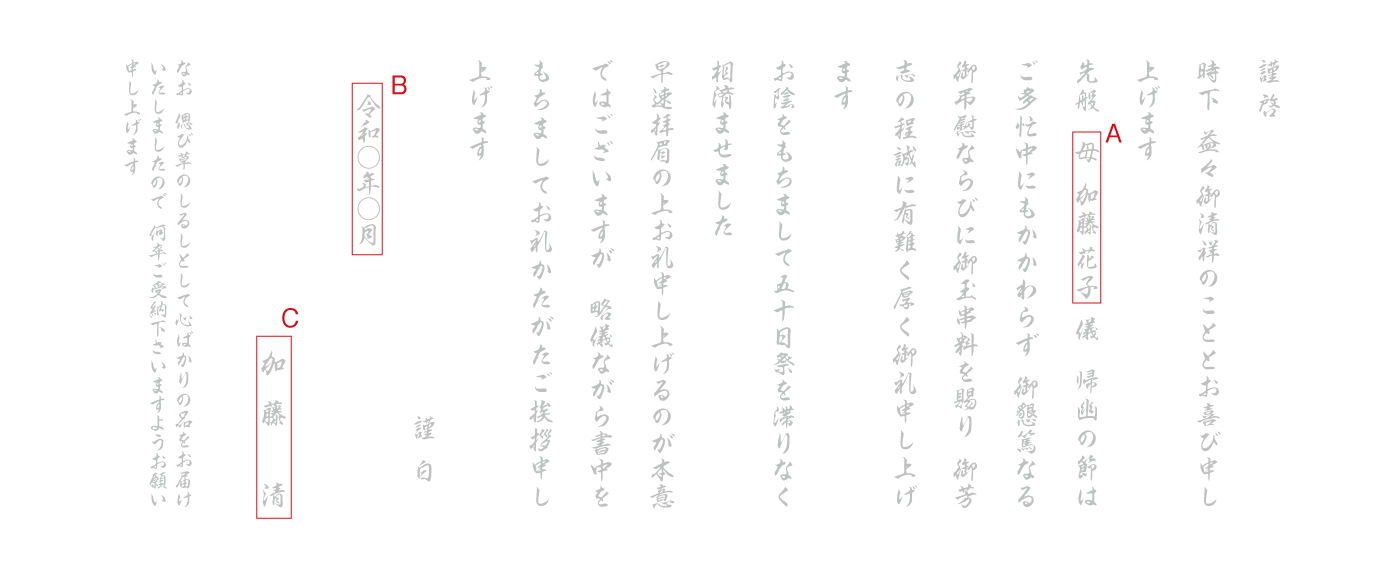 謹啓
時下 益々御清祥のこととお喜び申し
上げます
先般 母 加藤花子 儀 帰幽の節は
ご多忙中にもかかわらず 御懇篤なる
御弔慰ならびに御玉串料を賜り 御芳
志の程誠に有難く厚く御礼申し上げ
ます
お陰をもちまして五十日祭を滞りなく
相済ませました
早速拝眉の上お礼申し上げるのが本意
ではございますが 略儀ながら書中を
もちましてお礼かたがたご挨拶申し
上げます
謹白
令和〇年〇月
加藤 清
なお 偲び草のしるしとして心ばかりの名をお届け
いたしましたので 何卒ご受納下さいますようお願い
申し上げます
A
B
C